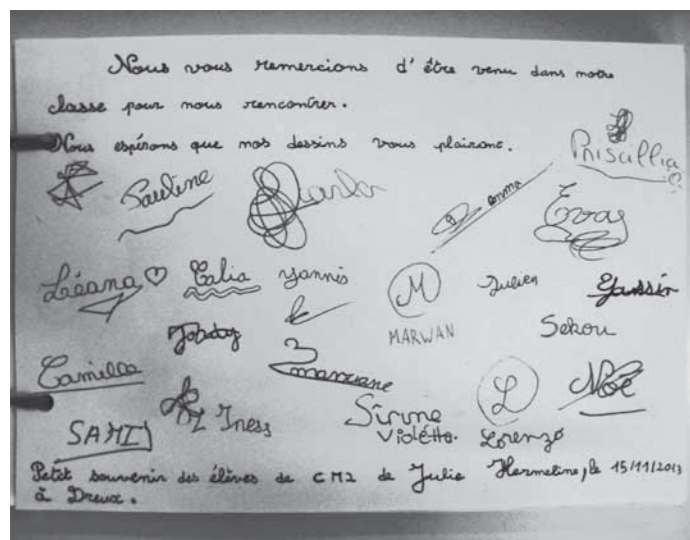 Nous vous remercions d'être venu dans notre
classe pour nous rencontrer.
Nous espérons que nos dessins vous plairont.
Priscillia
Pauline
Emma
Evas
Léana Talia Yannis M Julien Yassin
MARWAN Sekou
Camilla marwane L Noé
SAMI Iness Sirine
Violetta. Lorenzo
Petit souvenir des élèves de CM2 de Julie Hermeline, le 15/11/2013
à Dreux.